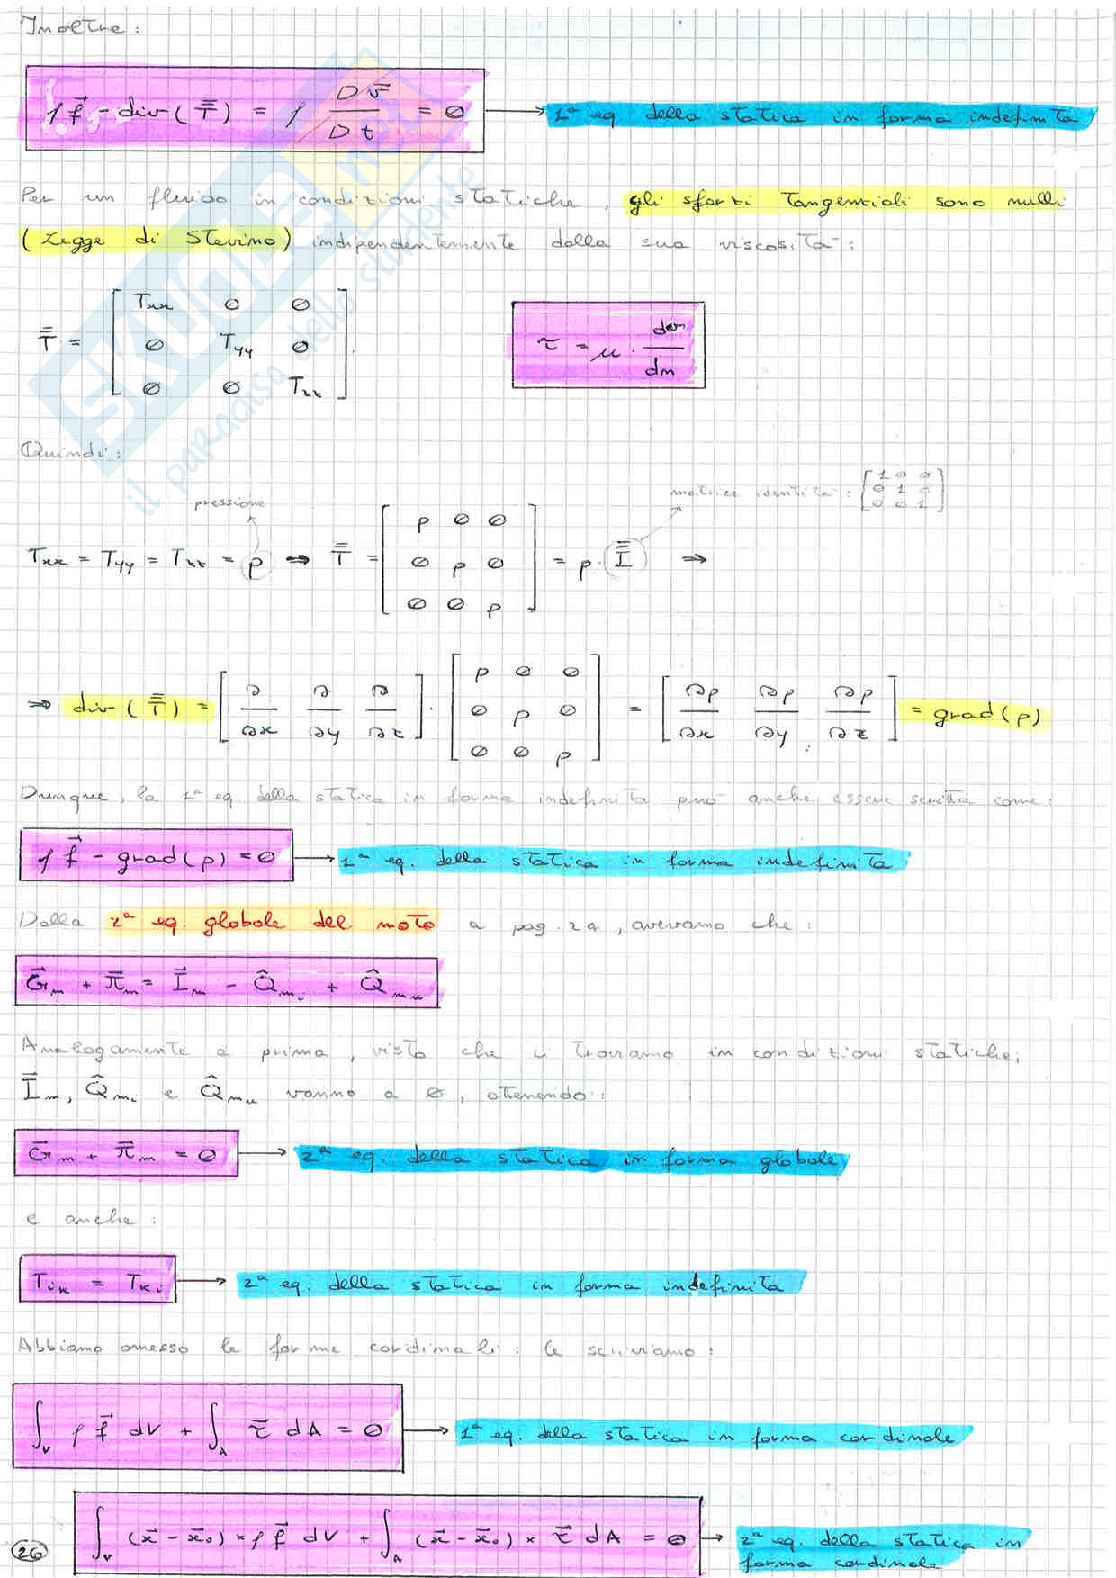 Inoltre:
ρ f⃗ - div(T̿) = ρ Dv̄/Dt = 0 → 1ª eq. della statica in forma indefinita
Per un fluido in condizioni statiche, gli sforzi tangenziali sono nulli
(Legge di Stevino) indipendentemente dalla sua viscosità:
T̿ = [Txx 0 0; 0 Tyy 0; 0 0 Tzz]
τ = μ · dv/dn
Quindi:
pressione
matrice identità: [1 0 0; 0 1 0; 0 0 1]
Txx = Tyy = Tzz = p ⇒ T̿ = [p 0 0; 0 p 0; 0 0 p] = p · I̿ ⇒
⇒ div(T̿) = [∂/∂x ∂/∂y ∂/∂z] · [p 0 0; 0 p 0; 0 0 p] = [∂p/∂x ∂p/∂y ∂p/∂z] = grad(p)
Dunque, la 1ª eq. della statica in forma indefinita può anche essere scritta come:
ρ f⃗ - grad(p) = 0 → 1ª eq. della statica in forma indefinita
Dalla 2ª eq. globale del moto a pag. 24, avevamo che:
G⃗m + π̄m = I⃗m - Q̂mi + Q̂mu
Analogamente a prima, visto che ci troviamo in condizioni statiche,
I⃗m, Q̂mi e Q̂mu vanno a 0, ottenendo:
G⃗m + π̄m = 0 → 2ª eq. della statica in forma globale
e anche:
Tik = Tki → 2ª eq. della statica in forma indefinita
Abbiamo omesso le forme cardinali: le scriviamo:
∫V ρ f⃗ dV + ∫A τ̄ dA = 0 → 1ª eq. della statica in forma cardinale
∫V (x⃗ - x⃗0) × ρ f⃗ dV + ∫A (x⃗ - x⃗0) × τ⃗ dA = 0 → 2ª eq. della statica in
forma cardinale
26
SKUOLA.net
il paradiso dello studente